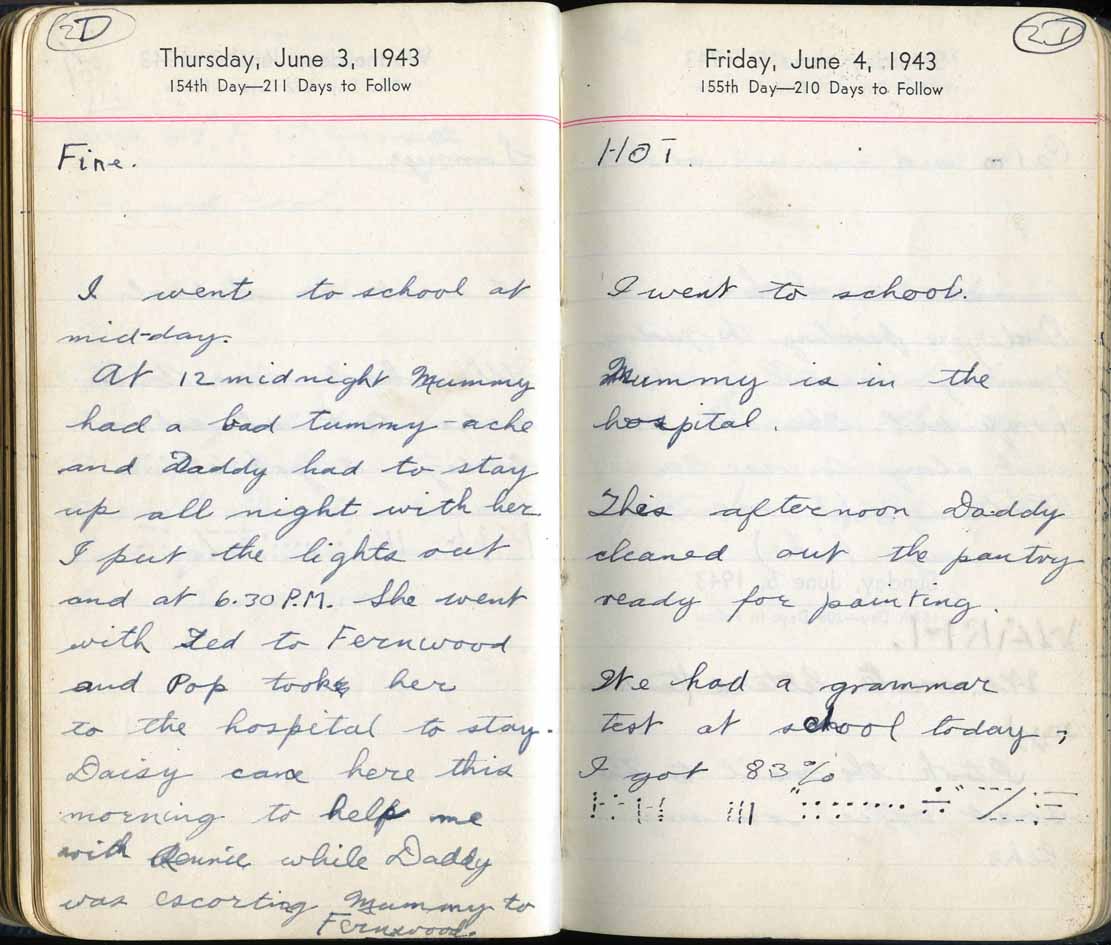 2D
Thursday, June 3, 1943
154th Day—211 Days to Follow
Fine.
I went to school at
mid-day.
At 12 midnight Mummy
had a bad tummy-ache
and Daddy had to stay
up all night with her.
I put the lights out
and at 6.30 P.M. She went
with Ted to Fernwood
and Pop took her
to the hospital to stay.
Daisy came here this
morning to help me
with while Daddy
was escorting Mummy to
Fernwood.
Friday, June 4, 1943
155th Day—210 Days to Follow
HOT.
I went to school.
Mummy is in the
hospital.
This afternoon Daddy
cleaned out the pantry
ready for painting.
We had a grammar
test at school today;
I got 83%